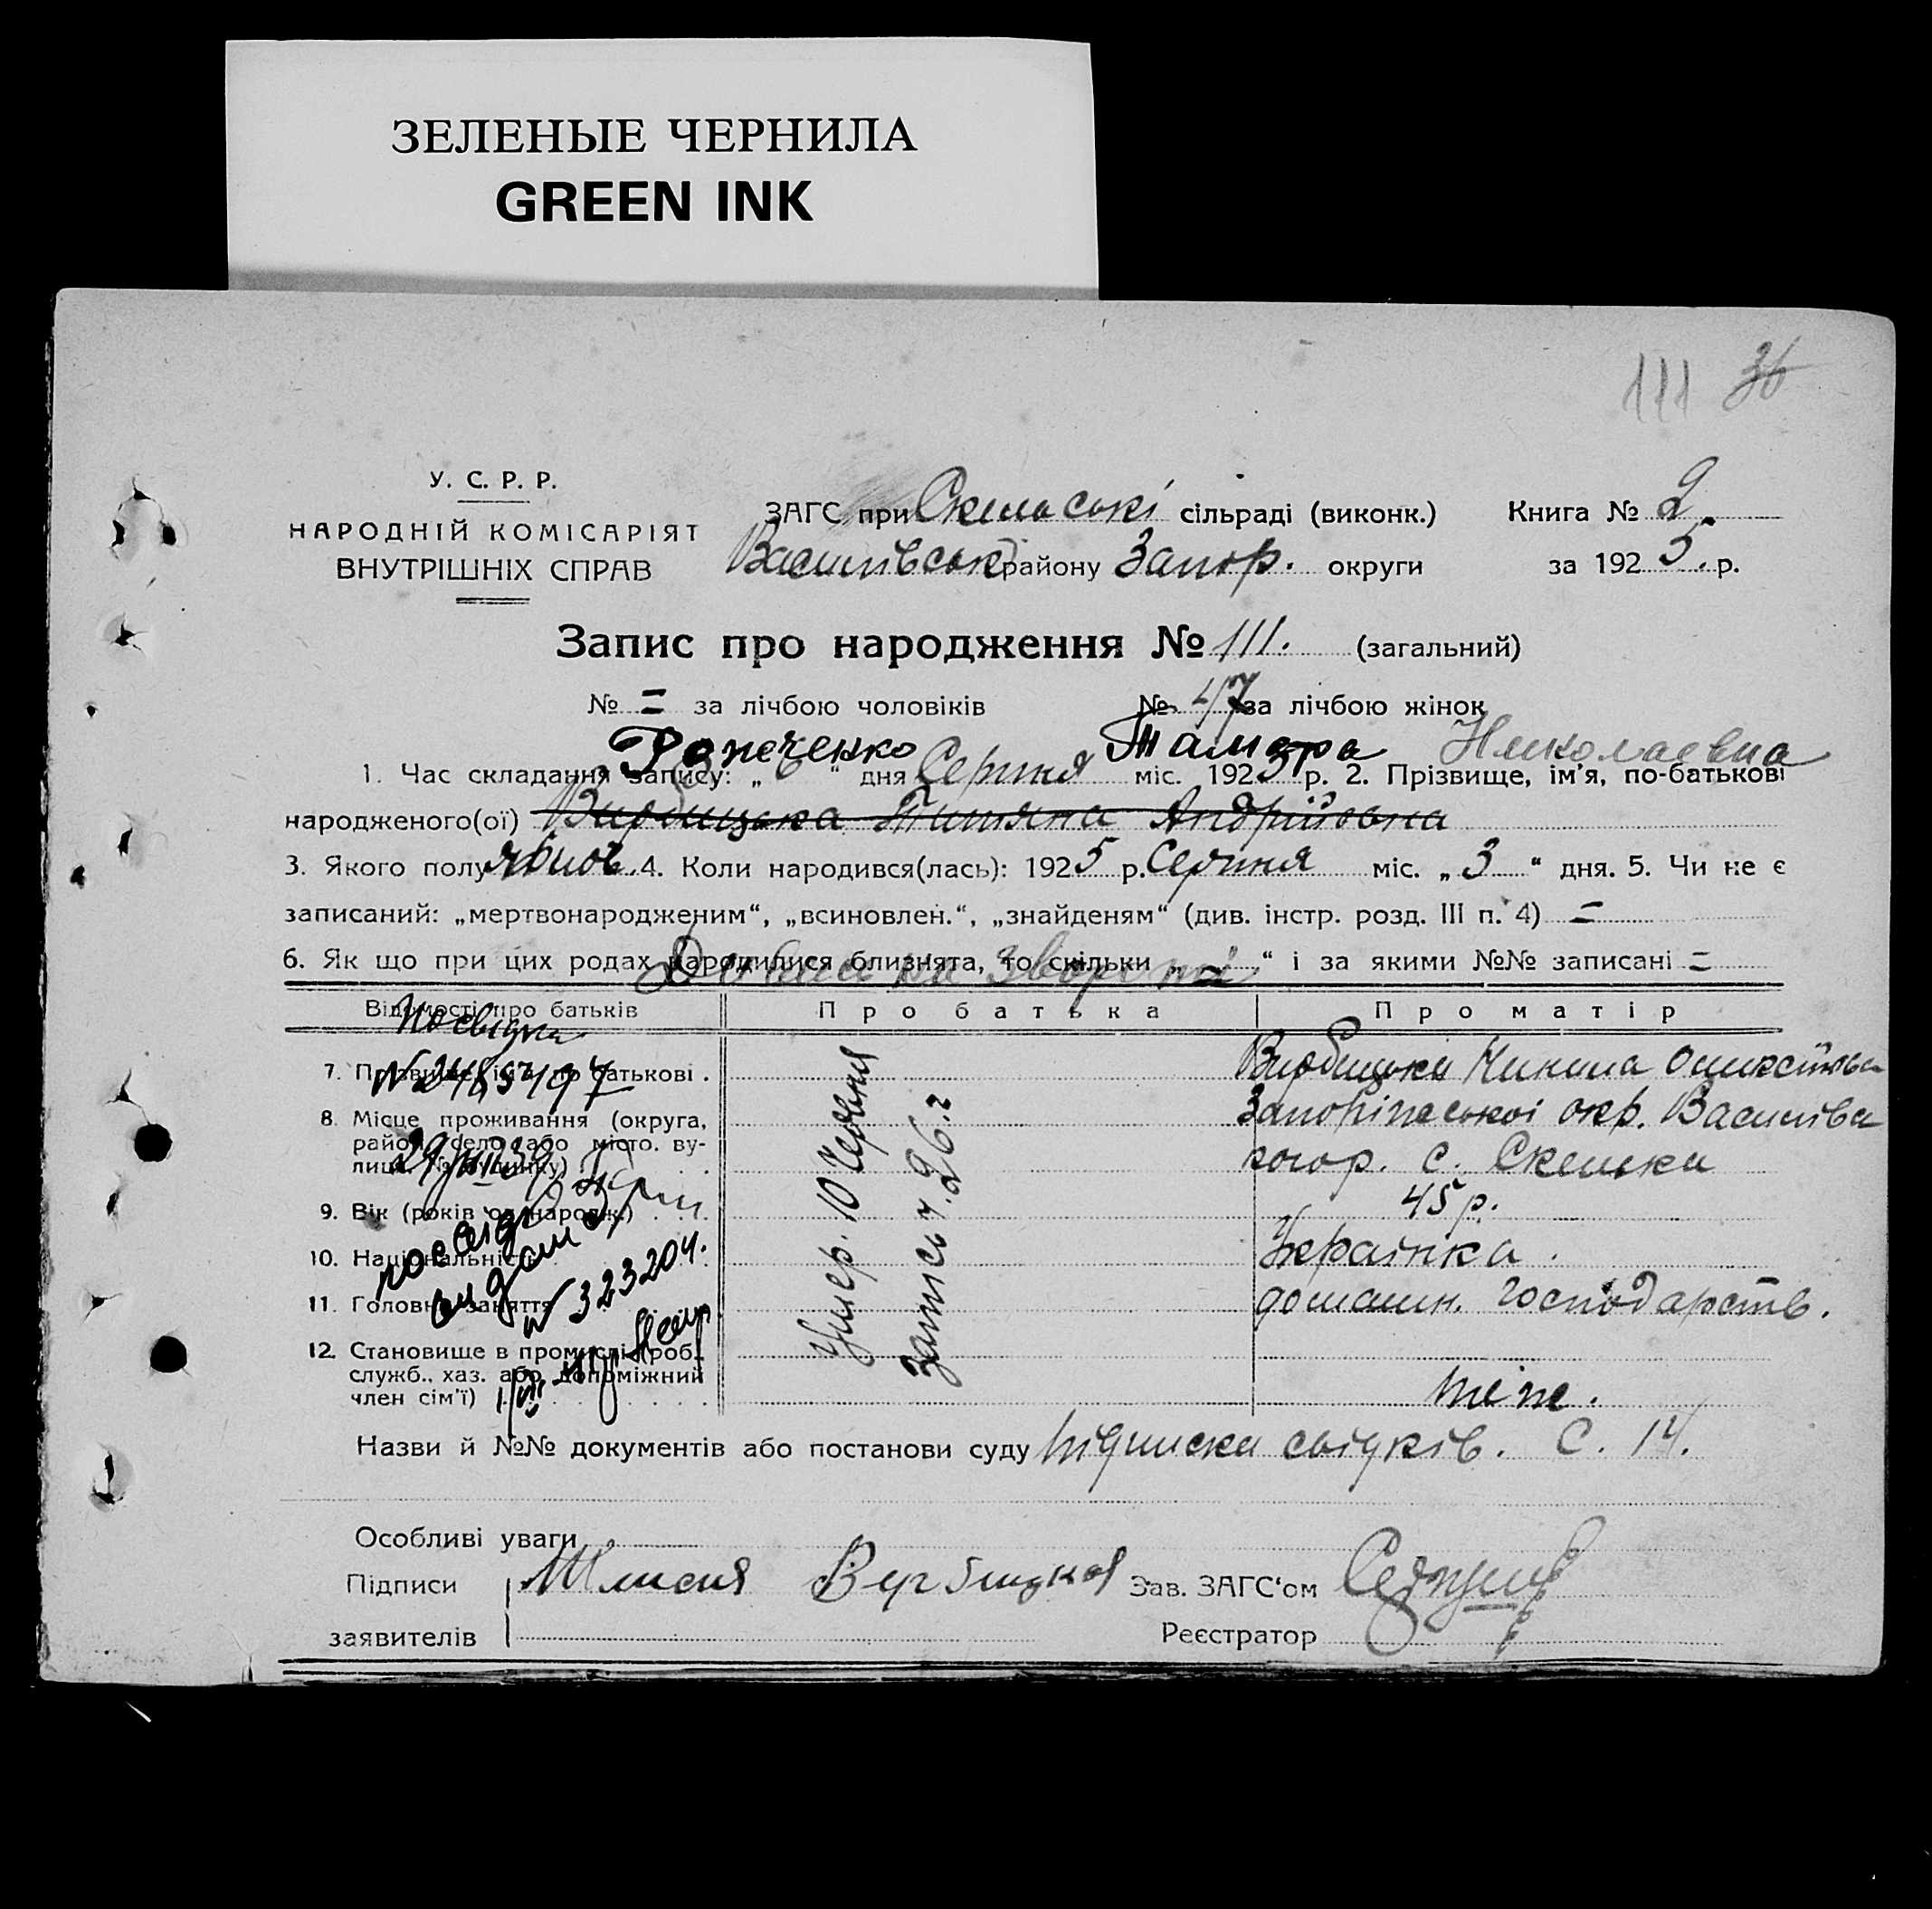 ЗЕЛЕНЫЕ ЧЕРНИЛА
GREEN INK
111 36
У. С. Р. Р.
НАРОДНІЙ КОМІСАРІЯТ
ВНУТРІШНІХ СПРАВ
ЗАГС при Скельські сільраді (виконк.) Книга № 2
Василівськ району Запор. округи за 1925 р.
Запис про народження № 111. (загальний)
№ = за лічбою чоловіків № 47 за лічбою жінок
Тамара Николаевна
1. Час складання запису: „ “ дня Серпня міс. 1925 р. 2. Прізвище, ім'я, по-батькові
народженого(ої) Вирбицька Титяна Андріївна
3. Якого полу жіноч. 4. Коли народився(лась): 1925 р. Серпня міс. „ 3 “ дня. 5. Чи не є
записаний: „мертвонародженим“, „всиновлен.“, „знайденям“ (див. інстр. розд. III п. 4) =
6. Як що при цих родах народилися близнята, то скільки „ “ і за якими №№ записані =
Відомості про батьків Про батька Про матір
Посвідка
7. Прізвище, ім'я, по-батькові . Вирбицька
8. Місце проживання (округа, Запоріжської окр. Василівс
район, село або місто, ву-
лиця, № будинку) . . с. Скельки
9. Вік (років од народж.) . . . 45 р.
10. Національність Українка.
11. Головне заняття домашн. господарств.
№ 323204.
12. Становище в промислі (роб.,
служб., хаз. або допоміжний
член сім'ї) теж.
Умер. 10 Червня
запись ч. 26.
Назви й №№ документів або постанови суду Підписка свідків. С. 14.
Особливі уваги
Підписи Вербицкая Зав. ЗАГС'ом
заявителів Реєстратор